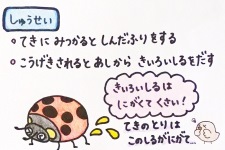 しゅうせい
○てきに みつかると しんだふりをする
○こうげきされると あしから きいろいしるをだす
きいろいしるは
にがくて くさい!
てきのとりは
このしるがにがて…